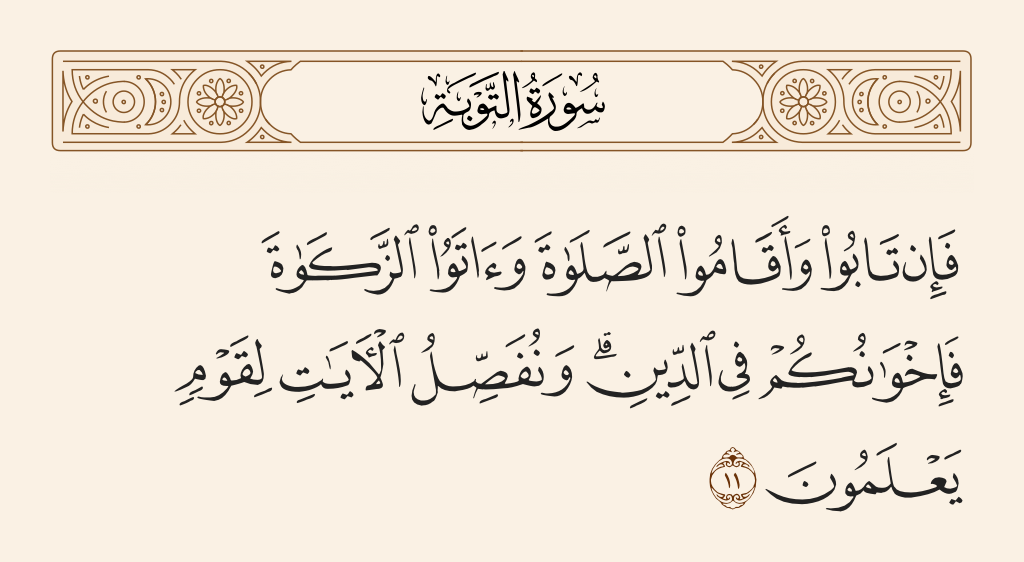 سُورَةُ التَّوْبَةِ
فَإِن تَابُوا۟ وَأَقَامُوا۟ ٱلصَّلَوٰةَ وَءَاتَوُا۟ ٱلزَّكَوٰةَ
فَإِخْوَٰنُكُمْ فِى ٱلدِّينِ ۗ وَنُفَصِّلُ ٱلْـَٔايَـٰتِ لِقَوْمٍ
يَعْلَمُونَ ١١